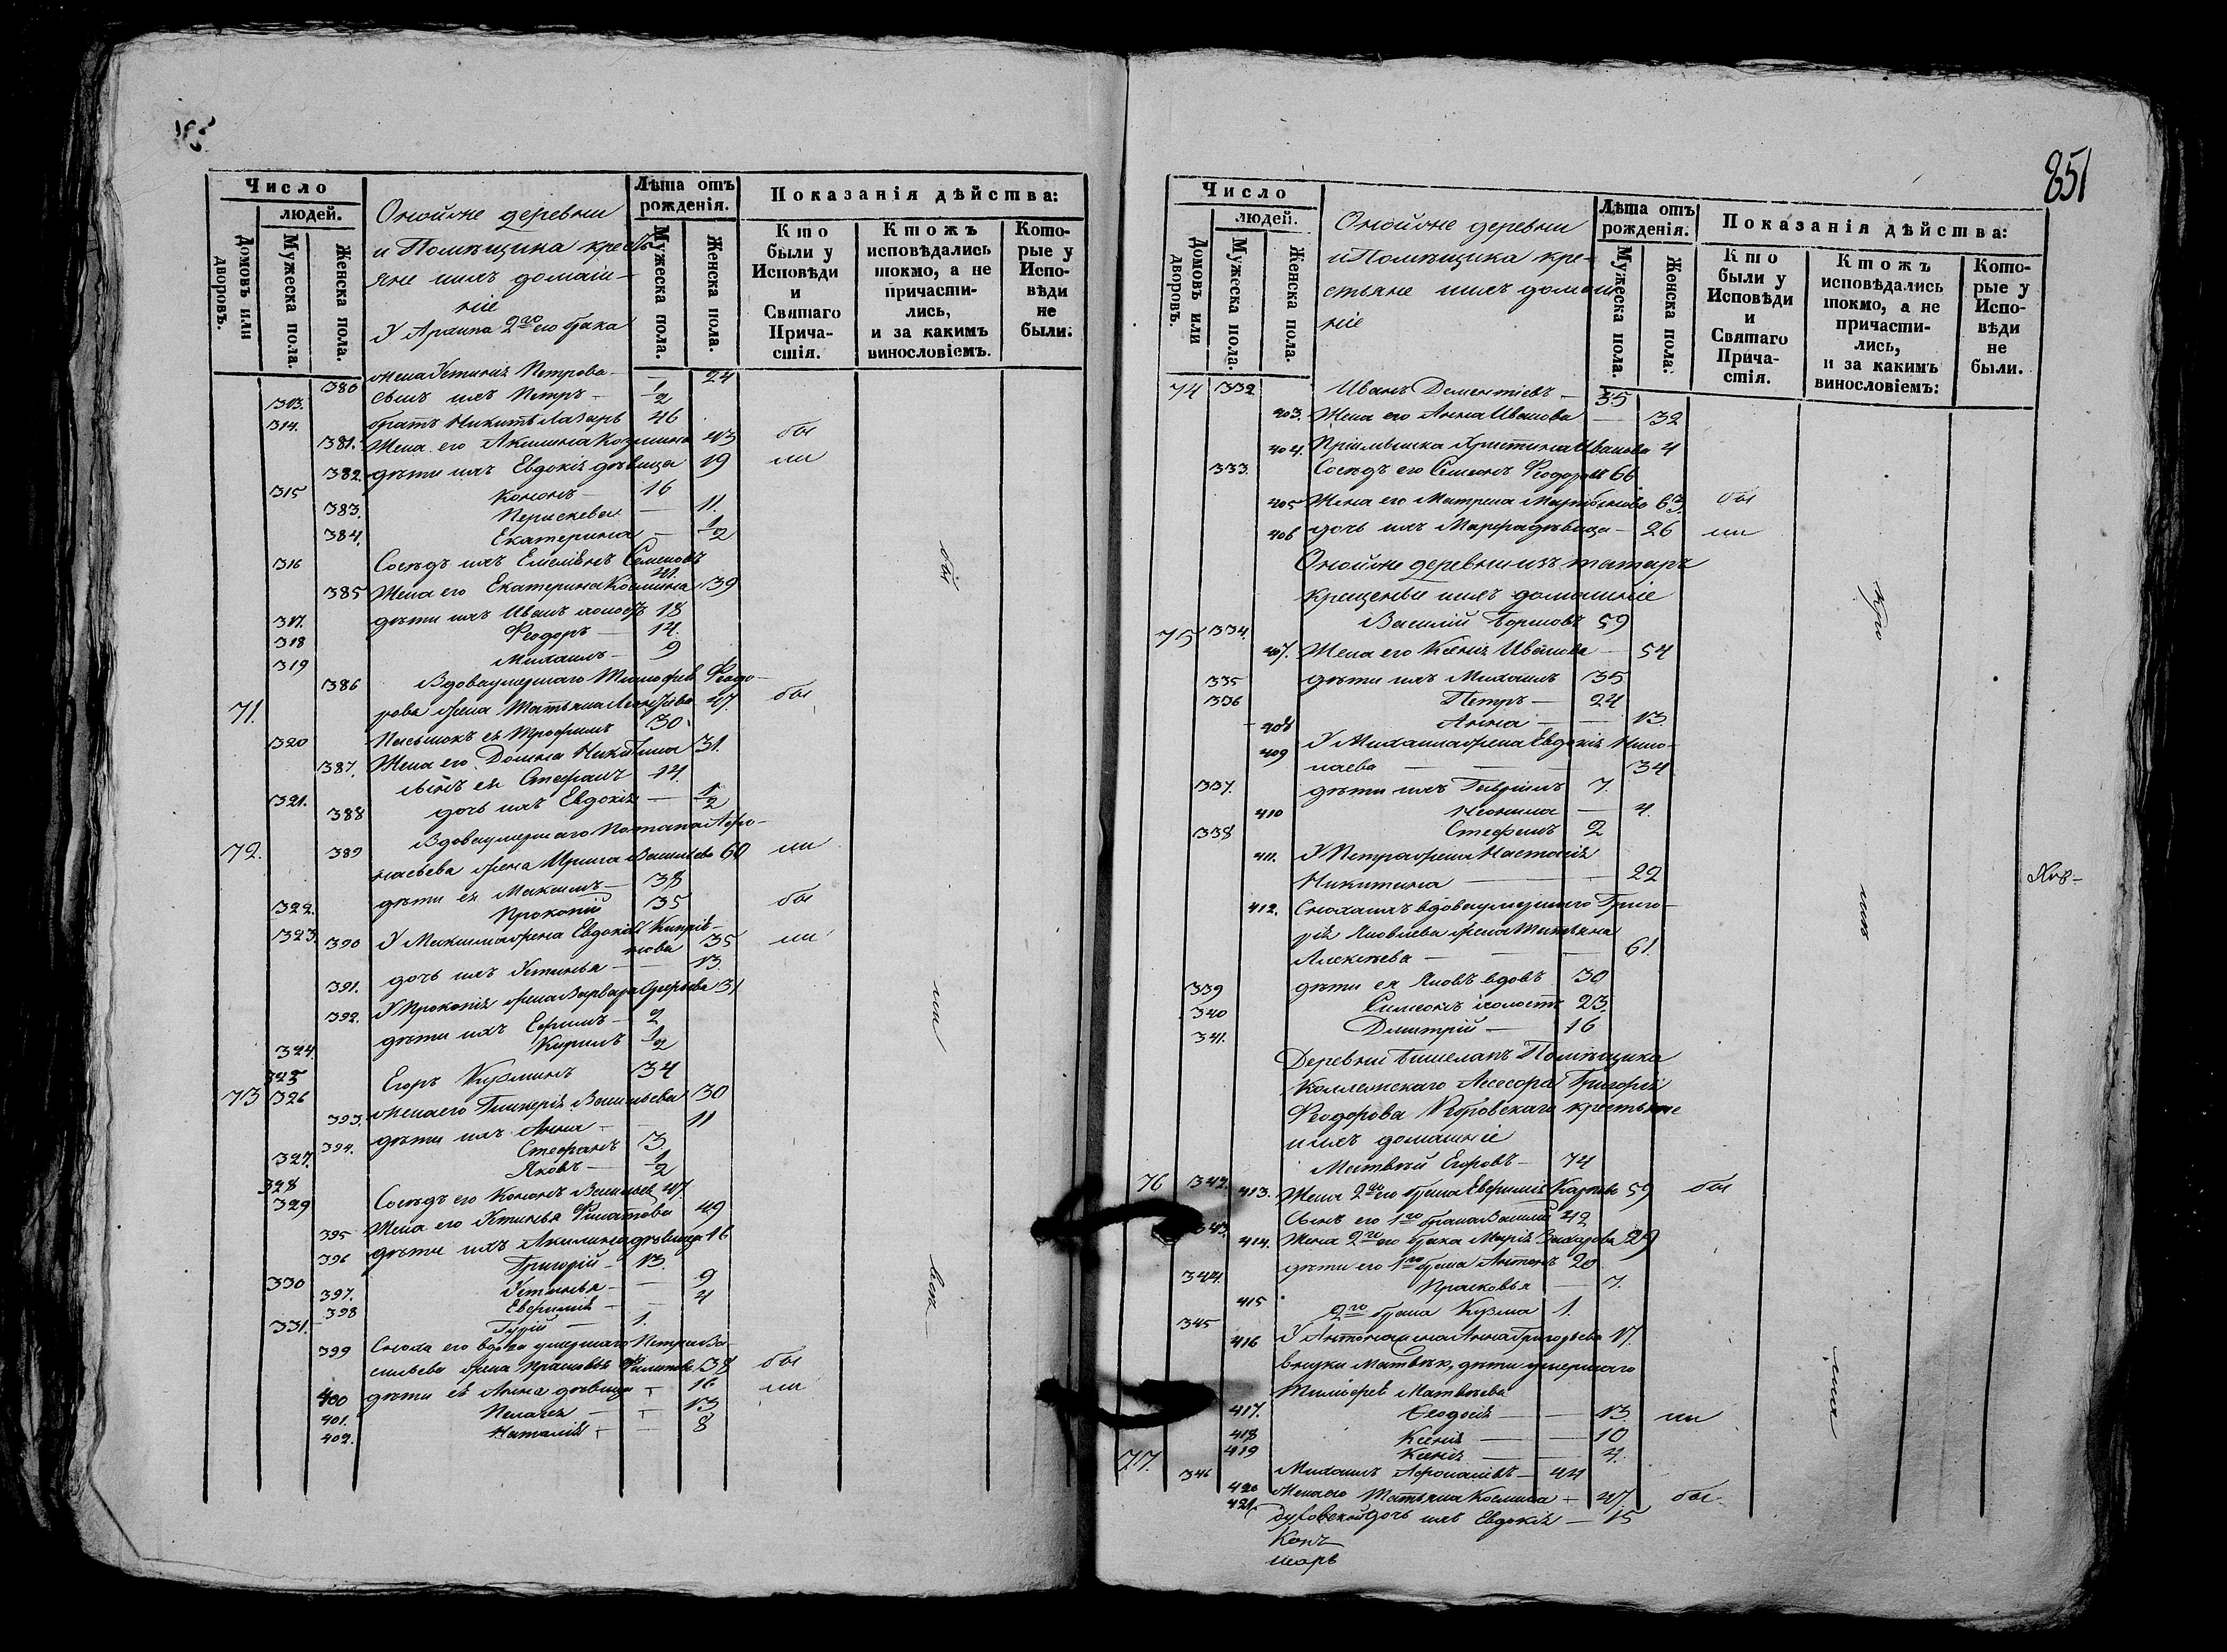 Число
людей.
Домовъ или дворовъ.
Мужеска пола.
Женска пола.
Оной же деревни
и Помѣщика кресть-
яне и ихъ домаш-
ніе
У Архипа 2го его брака
Лѣта отъ рожденія.
Мужеска пола.
Женска пола.
Показанія дѣйства:
Кто были у Исповѣди и Святаго Причастія.
Ктожъ исповѣдались токмо, а не причастились, и за какимъ винословіемъ.
Которые у Исповѣди не были.
380 жена Устинія Петрова — 24
313. сынъ ихъ Петръ — 1/2
314. братъ Никита Лазарь 46
381. Жена его Акилина Козмина 43 бы
382. дѣти ихъ Евдокія дѣвица 19 ли
315 Кононъ — 16
383. Перискева — 11.
384. Екатерина — 1/2
316 Сосѣдъ ихъ Емеліянъ Семеновъ 41.
385 Жена его Екатерина Космина 39
317. дѣти ихъ Иванъ холостъ 18
318 Феодоръ — 14.
319 Михаилъ — 9
386 Вдова умершаго Тимофея Феодо-
71. рова жена Татьяна 47. бы
320 Пасынокъ ея Трофимъ 30
387. Жена его Домна Никитина 31.
321. сынъ ея Стефанъ 14
388 дочь ихъ Евдокія — 1/2
Вдова умершаго Потапа Афо-
72. 389 насьева жена Ирина Васильева 60 ли
322. дѣти ея Максимъ — 38
323. Прокопій 35 бы
390 У Максима жена Евдокія Кипрія-
нова 35 ли
391. дочь ихъ Устинья — 13.
392. У Прокопія жена Варвара 31
324. дѣти ихъ Ефимъ — 2
325 Кирилъ 1/2
73 326 Егоръ Кузминъ 34
393. жена его Гликерія Васильева 30
394. дѣти ихъ Анна — 11
327. Стефанъ 3
328 Яковъ — 1/2
329 Сосѣдъ его Кононъ Васильевъ 47
395 Жена его Устинья Филатова 49
396 дѣти ихъ Акилина дѣвица 16
330 Григорій — 13.
397. Устинья — 9
398 Евфимія — 4
331. Гурій — 1.
399 Сноха его вдова умершаго Петра Ва-
сильева жена Прасковья Филипова 38 бы
400 дѣти ея Анна дѣвица — 16 ли
401. Пелагея — 13
402. Наталія — 8
бы
ли
851
Число
людей.
Домовъ или дворовъ.
Мужеска пола.
Женска пола.
Оной же деревни
и Помѣщика кре-
стьяне и ихъ домаш-
ніе
Лѣта отъ рожденія.
Мужеска пола.
Женска пола.
Показанія дѣйства:
Кто были у Исповѣди и Святаго Причастія.
Ктожъ исповѣдались токмо, а не причастились, и за какимъ винословіемъ:
Которые у Исповѣди не были.
74 332 Иванъ Дементіевъ — 35
403. Жена его Анна Иванова — 32
404. Пріемышка Христина Иванова 4
333. Сосѣдъ его Симеонъ Феодоровъ 66
405 Жена его Матрена Мартынова 63. бы
406 дочь ихъ Марфа дѣвица — 26 ли
Оной же деревни изъ татаръ
крещеные и ихъ домашніе
75 334. Василій Борисовъ 59
407. Жена его Ксенія Иванова — 54
335 дѣти ихъ Михаилъ 35
336 Петръ — 24
408 Анна — 13
409 У Михаила жена Евдокія Нико-
лаева — 34
337. дѣти ихъ Гавріилъ 7.
410 Неонила — 4.
338 Стефанъ 2
411. У Петра жена Настасія
Никитина — 22
412. Сноха ихъ вдова умершаго Григо-
рія Яковлева жена Татьяна
Алексѣева — 61.
339 дѣти ея Яковъ вдовъ 30
340 Симеонъ холостъ 23.
341. Дмитрій — 16
Деревни Помѣщика
Коллежскаго Ассесора Григорія
Феодорова крестьяне
и ихъ домашніе
76 342. Матвѣй Егоровъ — 74
413. Жена 2го его брака Евфимія Карпова 59 бы
343. Сынъ его 1го брака Василій 42
414. Жена 2го его брака Марія Захарова 29
344. дѣти его 1го брака Антонъ 20
415 Прасковья — 7.
345 2го брака Кузма 1.
416 У Антона жена Анна Григорьева 17.
внуки Матвѣя, дѣти умершаго
Тимофея Матвѣева
417. Феодосія — 13. ли
418 Ксенія — 10
419 Ксенія — 4.
77. 346 Михаилъ Афонасіевъ — 44
420 Жена его Татьяна Космина — 47. бы
421. дочь ихъ Евдокія — 15
Духовской